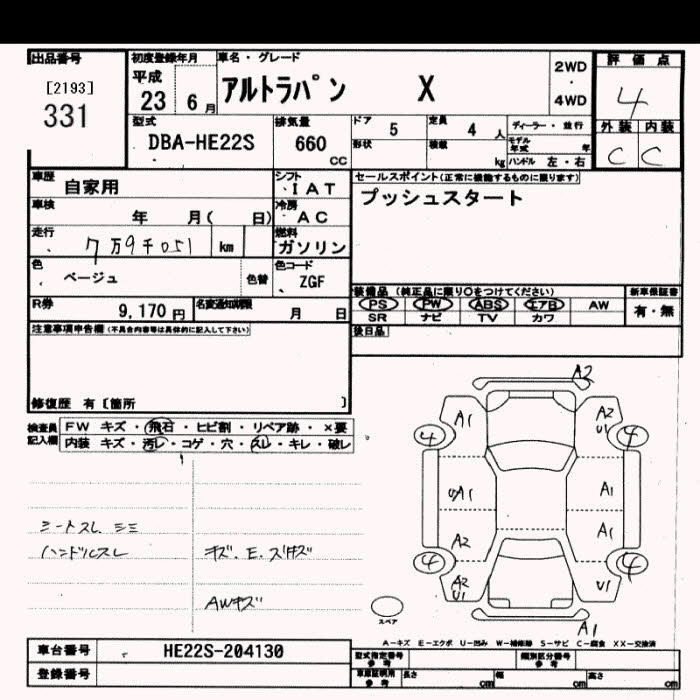 出品番号 初度登録年月 車名・グレード 2WD ・ 4WD 評価点
[2193] 平成
331 23年 6月 アルトラパン X 4
外装 内装
C C
型式 排気量 ドア 5 定員 4人 ディーラー・並行
DBA-HE22S 660 CC 形状 積載 kg モデル年式 年
ハンドル 左・右
車歴 自家用 シフト IAT セールスポイント(正常に機能するものに限ります)
車検 年 月( 日) 冷房 AC プッシュスタート
走行 7万9千051 km 燃料 ガソリン
色 ベージュ 色替 色コード ZGF
装備品 (純正品に限り○をつけてください) 新車保証書
PS PW ABS エアB AW 有・無
SR ナビ TV カワ
R券 9,170円 名変通知期限 月 日
後日品
注意事項申告欄(不具合内容等は具体的に記入して下さい)
修復歴 有〔箇所 〕
検査員記入欄 FW キズ・飛石・ヒビ割・リペア跡・×要
内装 キズ・汚レ・コゲ・穴・スレ・キレ・破レ
シートスレ シミ
ハンドルスレ キズ.E.ズキズ
AWキズ
A2
A1 A2 U1
4 4
A1 A1
A1
A2
4 4
A2 U1 U1
A1
スペア
A-キズ E-エクボ U-凹み W-補修跡 S-サビ C-腐食 XX-交換済
車台番号 HE22S-204130 型式指定番号 参考 類別区分番号 参考
登録番号 車庫証明用 参考 長さ cm 幅 cm 高さ cm